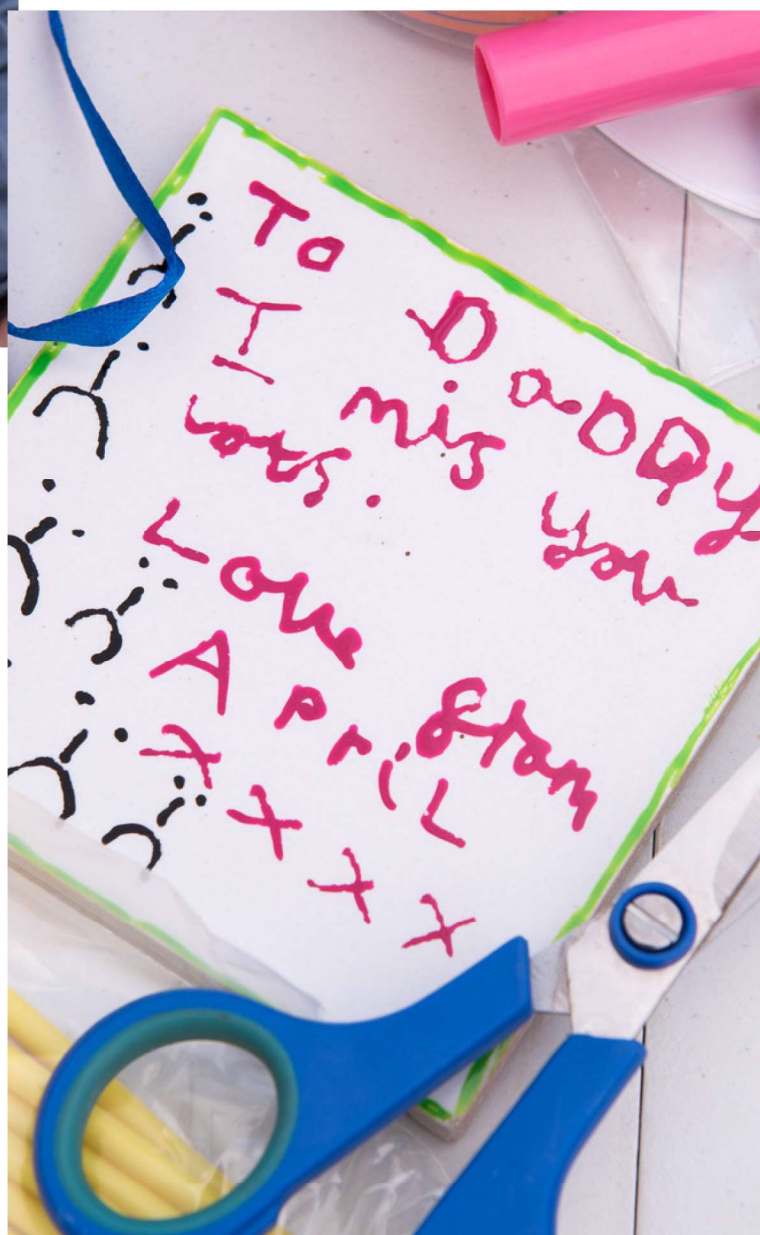 To DaDDy
I mis you
lots.
Love from
APriL
X X X X